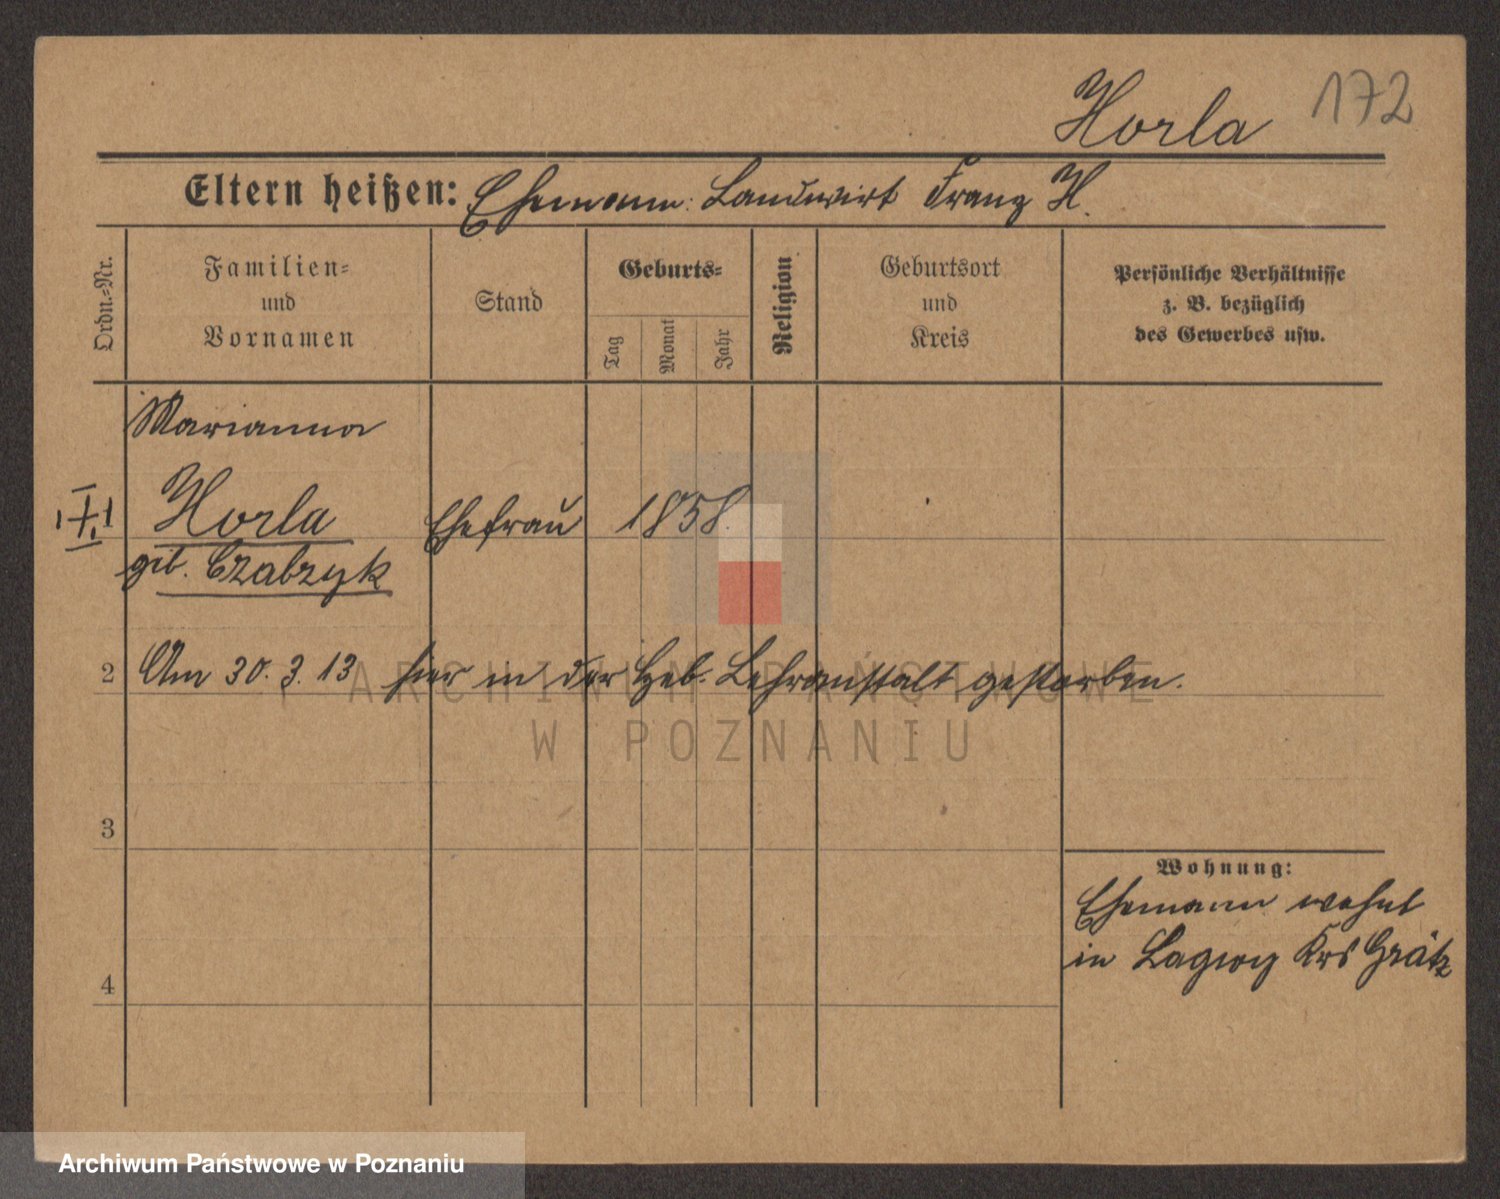 Horla 172
Eltern heißen: Ehemann: Landwirt Franz H.
Ordn.-Nr.
Familien-
und
Vornamen
Stand
Geburts-
Tag
Monat
Jahr
Religion
Geburtsort
und
Kreis
Persönliche Verhältnisse
z. B. bezüglich
des Gewerbes usw.
Marianna
1 Horla Ehefrau 1858
geb. Czabzyk
2 Am 30. 3. 13 hier in der Heb. Lehranstalt gestorben.
3
Wohnung:
Ehemann wohnt
in Lagwy Krs Grätz
4
ARCHIWUM PAŃSTWOWE
W POZNANIU
Archiwum Państwowe w Poznaniu